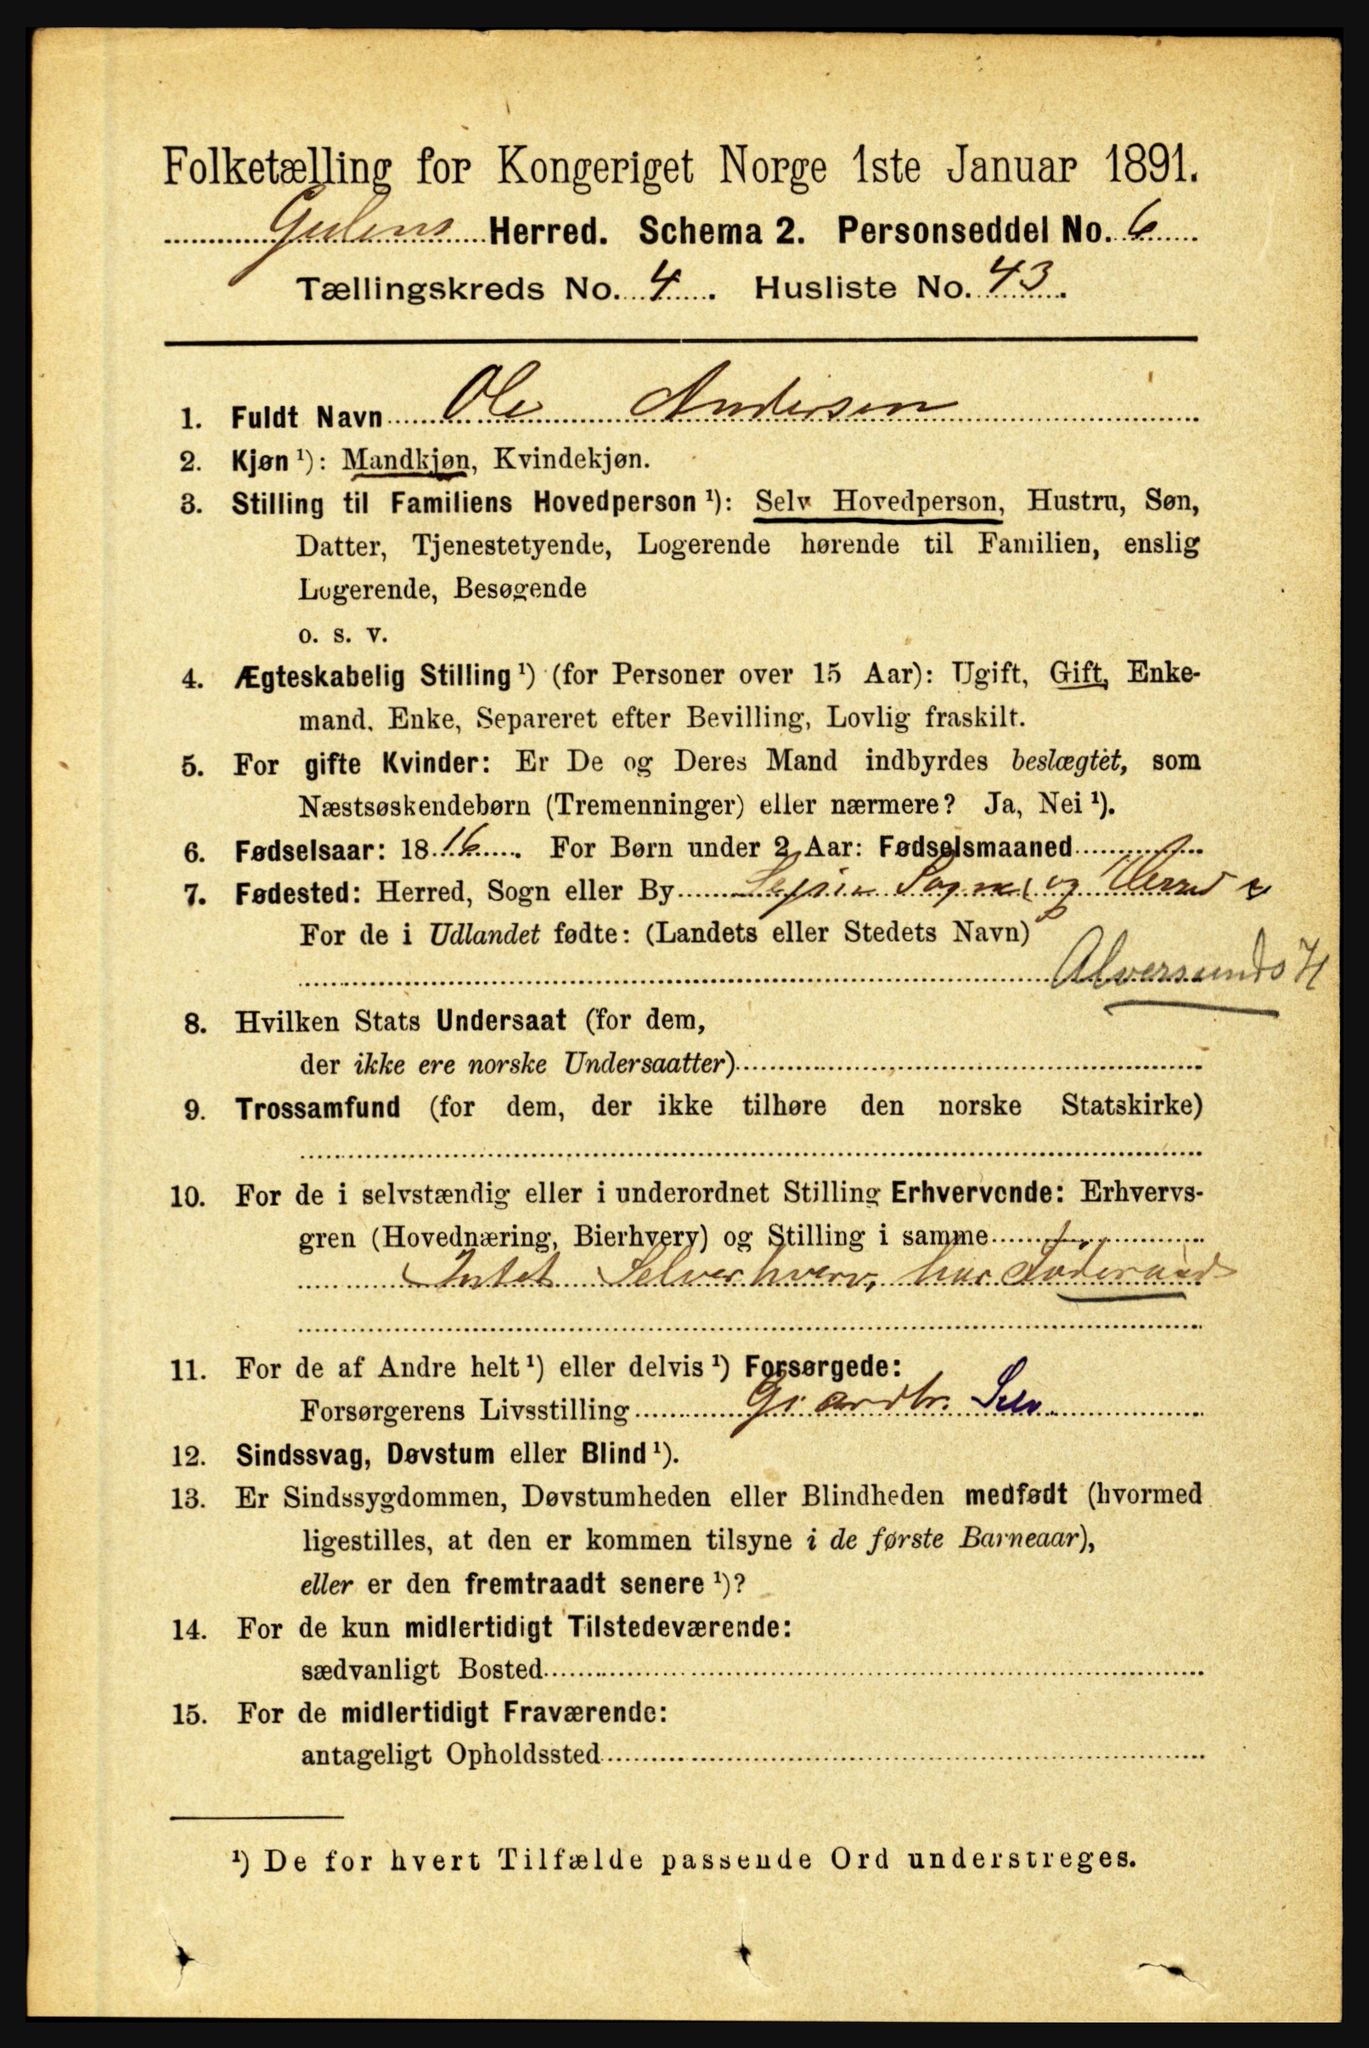 Folketælling for Kongeriget Norge 1ste Januar 1891.
Gulens Herred. Schema 2. Personseddel No. 6
Tællingskreds No. 4. Husliste No. 43.
1. Fuldt Navn Ole Andersen
2. Kjøn ¹): Mandkjøn, Kvindekjøn.
3. Stilling til Familiens Hovedperson ¹): Selv Hovedperson, Hustru, Søn,
Datter, Tjenestetyende, Logerende hørende til Familien, enslig
Logerende, Besøgende
o. s. v.
4. Ægteskabelig Stilling ¹) (for Personer over 15 Aar): Ugift, Gift, Enke-
mand, Enke, Separeret efter Bevilling, Lovlig fraskilt.
5. For gifte Kvinder: Er De og Deres Mand indbyrdes beslægtet, som
Næstsøskendebørn (Tremenninger) eller nærmere? Ja, Nei ¹).
6. Fødselsaar: 1816. For Børn under 2 Aar: Fødselsmaaned
7. Fødested: Herred, Sogn eller By Sogn og Herred
For de i Udlandet fødte: (Landets eller Stedets Navn)
Alversunds H
8. Hvilken Stats Undersaat (for dem,
der ikke ere norske Undersaatter)
9. Trossamfund (for dem, der ikke tilhøre den norske Statskirke)
10. For de i selvstændig eller i underordnet Stilling Erhvervende: Erhvervs-
gren (Hovednæring, Bierhverv) og Stilling i samme
Intet Selverhverv, har Føderaad
11. For de af Andre helt ¹) eller delvis ¹) Forsørgede:
Forsørgerens Livsstilling Gaardbr. Selv
12. Sindssvag, Døvstum eller Blind ¹).
13. Er Sindssygdommen, Døvstumheden eller Blindheden medfødt (hvormed
ligestilles, at den er kommen tilsyne i de første Barneaar),
eller er den fremtraadt senere ¹)?
14. For de kun midlertidigt Tilstedeværende:
sædvanligt Bosted
15. For de midlertidigt Fraværende:
antageligt Opholdssted
¹) De for hvert Tilfælde passende Ord understreges.